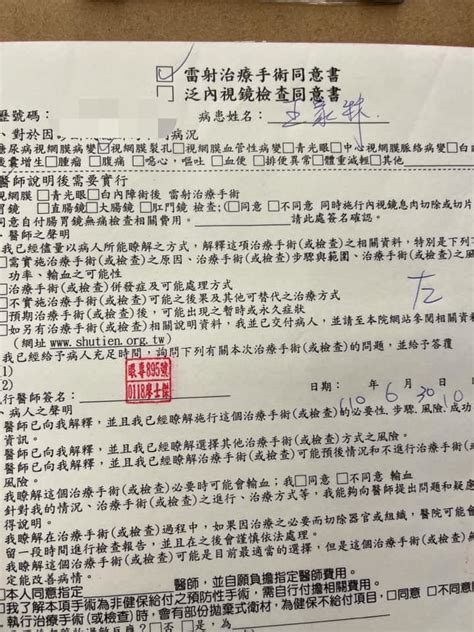 ☑ 雷射治療手術同意書
□ 泛內視鏡檢查同意書
歷號碼： 病患姓名：
、對於因 病況
糖尿病視網膜病變 □視網膜裂孔 □視網膜血管性病變 □青光眼 □中心視網膜脈絡病變 □白
後囊增生 □腫瘤 □腹痛 □噁心，嘔吐 □血便 □排便異常 □體重減輕 □其他
醫師說明後需要實行
視網膜 □青光眼 □白內障術後 雷射治療手術
胃鏡 □直腸鏡 □大腸鏡 □肛門鏡 檢查；(□同意 □不同意 同時施行內視鏡息肉切除或切片
同意自付腸胃鏡無痛檢查相關費用。 請此處簽名確認。
、醫師之聲明
我已經儘量以病人所能瞭解之方式，解釋這項治療手術(或檢查)之相關資料，特別是下列
□需實施治療手術(或檢查)之原因、治療手術(或檢查)步驟與範圍、治療手術(或檢查)
功率、輸血之可能性
□治療手術(或檢查)併發症及可能處理方式
□不實施治療手術(或檢查)可能之後果及其他可替代之治療方式
□預期治療手術(或檢查)後，可能出現之暫時或永久症狀
□如另有治療手術(或檢查)相關說明資料，我並已交付病人，並請至本院網站參閱相關
(網址 www.shutien.org.tw)
左
我已經給予病人充足時間，詢問下列有關本次治療手術(或檢查)的問題，並給予答覆
(1)
(2)
眼專895號
行醫師簽名： 日期： 110 年 6 月 30 日 10
、病人之聲明
醫師已向我解釋，並且我已經瞭解施行這個治療手術(或檢查)的必要性、步驟、風險、成功
資訊。
醫師已向我解釋，並且我已經瞭解選擇其他治療手術(或檢查)方式之風險。
醫師已向我解釋，並且我已經瞭解治療手術(或檢查)可能預後情況和不進行治療手術(或檢
風險。
我瞭解這個治療手術(或檢查)必要時可能會輸血；我□同意 □不同意 輸血
針對我的情況、治療手術(或檢查)之進行、治療方式等，我能夠向醫師提出問題和疑慮
得說明。
我瞭解在治療手術(或檢查)過程中，如果因治療之必要而切除器官或組織，醫院可能會
留一段時間進行檢查報告，並且在之後會謹慎依法處理。
我瞭解這個治療手術(或檢查)可能是目前最適當的選擇，但是這個治療手術(或檢查)
定能改善病情。
□本人同意指定 醫師，並自願負擔指定醫師費用。
□我了解本項手術為非健保給付之預防性手術，需自行付擔相關費用。
執行治療手術(或檢查)時，會有部份拋棄式衛材，為健保不給付項目，□同意 □不同意